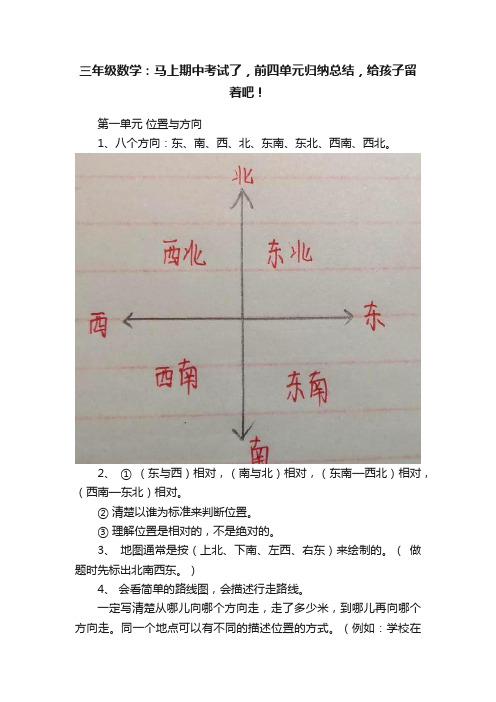 三年级数学：马上期中考试了，前四单元归纳总结，给孩子留
着吧！
第一单元 位置与方向
1、八个方向：东、南、西、北、东南、东北、西南、西北。
北
西北 东北
西 东
西南 东南
南
2、 ① （东与西）相对，（南与北）相对，（东南—西北）相对，
（西南—东北）相对。
② 清楚以谁为标准来判断位置。
③ 理解位置是相对的，不是绝对的。
3、 地图通常是按（上北、下南、左西、右东）来绘制的。（ 做
题时先标出北南西东。）
4、 会看简单的路线图，会描述行走路线。
一定写清楚从哪儿向哪个方向走，走了多少米，到哪儿再向哪个
方向走。同一个地点可以有不同的描述位置的方式。（例如：学校在